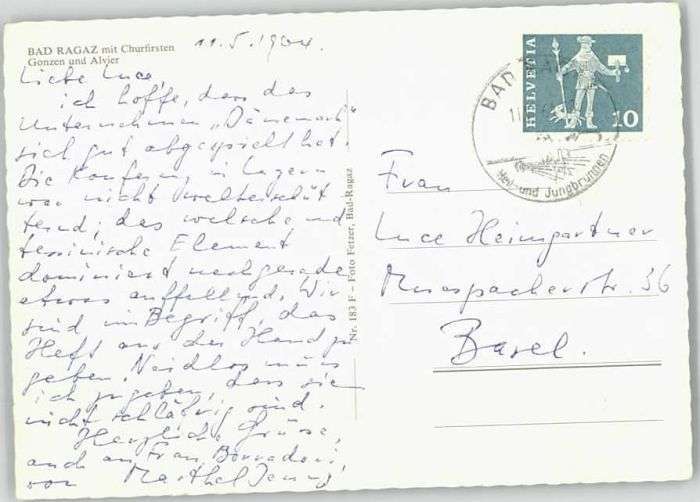 BAD RAGAZ mit Churfirsten
Gonzen und Alvier
11.5.1964.
Liebe Luce,
ich hoffe, dass das
Unternehmen „Dänemark"
sich gut abgespielt hat.
Die Konferenz in Lugano
war nicht welterschüt
ternd; das welsche und
tessinische Element
dominiert nachgerade
etwas auffallend. Wir
sind im Begriff, das
Heft aus der Hand zu
geben. Neidlos muss
ich zugeben, dass sie
nicht schläfrig sind.
Herzliche Grüsse,
auch an Frau
von Marthel Jenny
Nr. 183 F - Foto Fetzer, Bad-Ragaz
HELVETIA
10
BAD
Heil- und Jungbrunnen
Frau
Luce Heimgartner
Muespacherstr. 36
Basel.